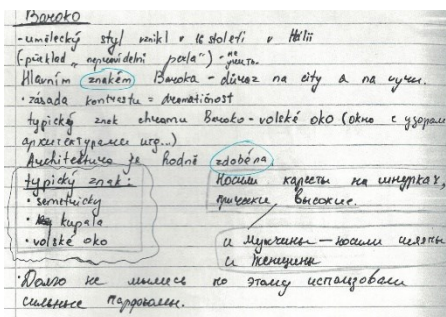 Baroko
- umělecký styl vznikl v 16 století v Itálii
(- překlad "nepravidelní perla") - не учить.
Hlavním znakém Baroka - důraz na city a na
• zásada kontrastu = dramatičnost
typický znak chramu Baroko - volské oko (окно с узорам
архитектурами итд...)
Architektura je hodně zdobéna
typický znak:
• semetricky
• kupala
• volské oko
Носили корсеты на шнурках,
прически высокие.
и мужчины — носили
и женщины
• Долго не мылись по этому использовали
сильные парфюмы.